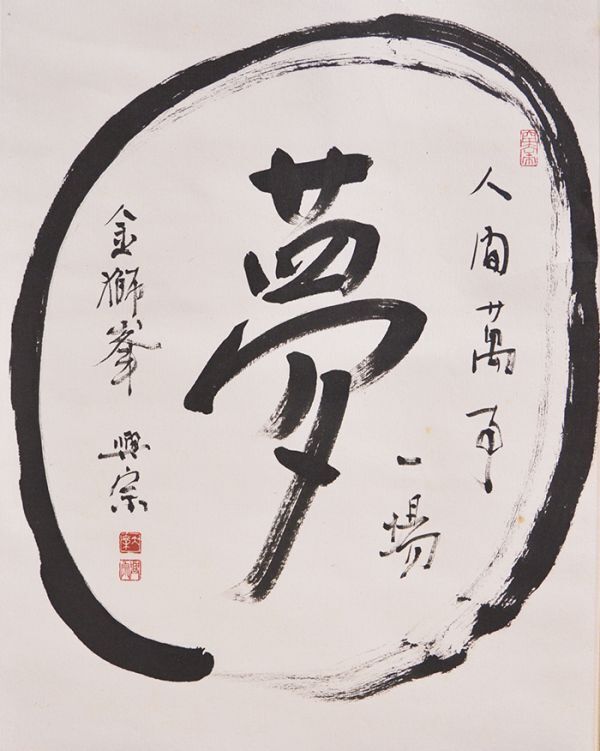 人間萬事
一場
夢
金獅峯 興宗